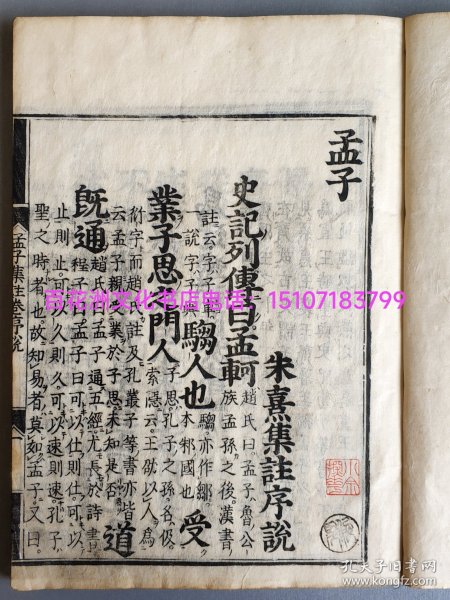 孟子
朱熹集註序説
史記列傳曰孟軻
趙氏曰孟子魯公
族孟孫之後漢書
註云字子車
一説字子輿
騶人也
騶亦作鄒
本邾國也
受
業子思之門人
子思孔子之孫名伋
索隱云王劭以人爲
衍字而趙氏註及孔叢子等書亦皆
云孟子親受業於子思未知是否
道
既通
趙氏曰孟子通五經尤長於詩書
程子曰孟子曰可以仕則仕可以
止則止可以久則久可以速則速孔子
聖之時者也故知易者莫如孟子又曰
孟子集註序説
百花洲文化书店电话：15107183799
孔夫子旧书网
kongfz.com